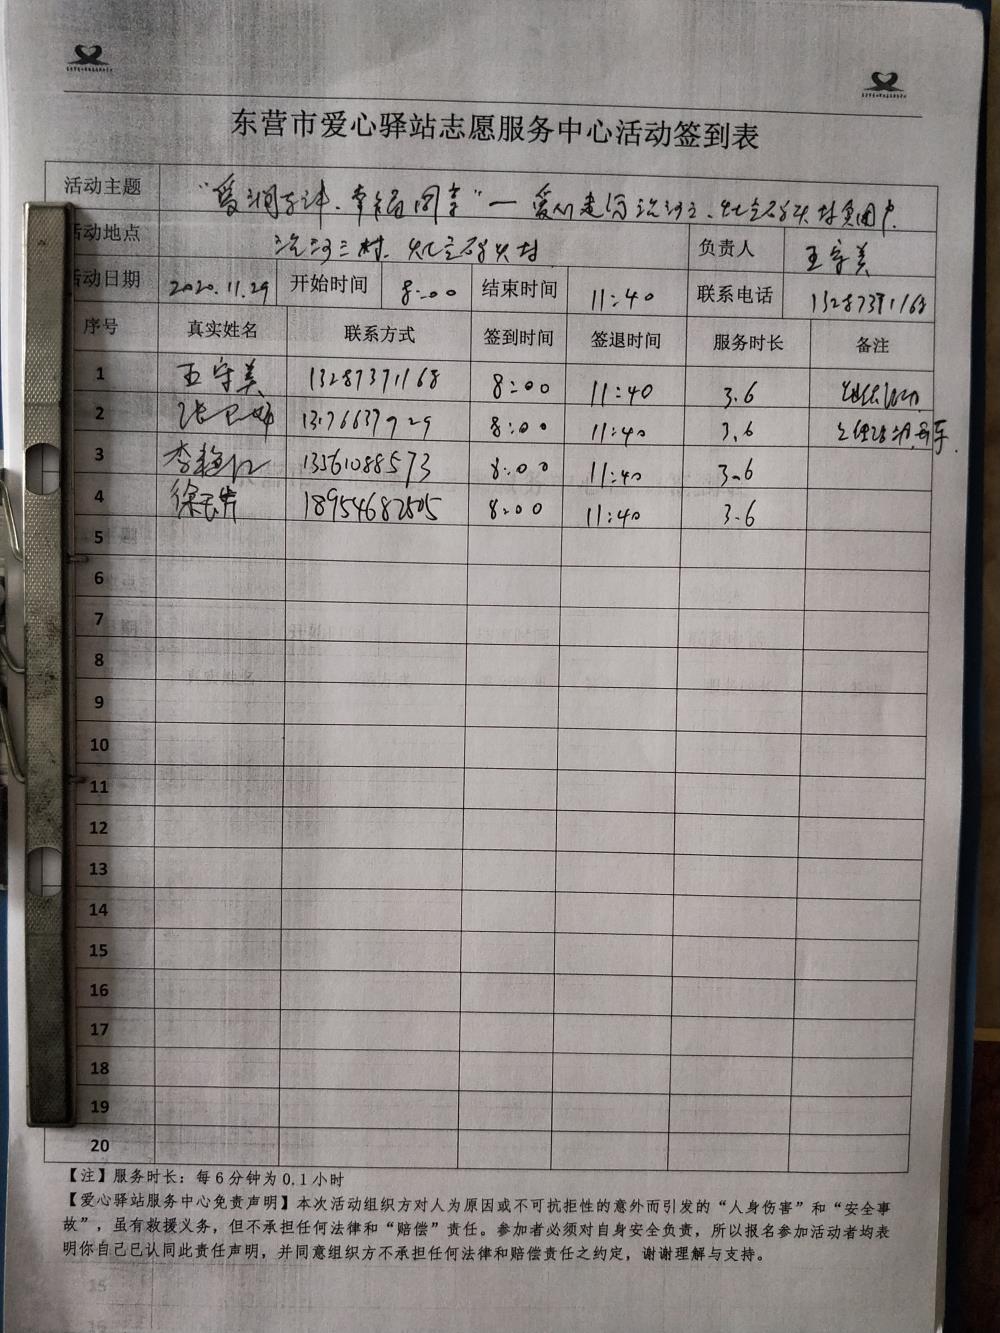 东营市爱心驿站志愿服务中心活动签到表
活动主题 “爱润东津、幸福同享”—爱心走访
活动地点 负责人 王守美
活动日期 2020.11.29 开始时间 8:00 结束时间 11:40 联系电话 13287371168
序号 真实姓名 联系方式 签到时间 签退时间 服务时长 备注
1 王守美 13287371168 8:00 11:40 3.6
2 1376637929 8:00 11:40 3.6
3 李艳红 13561088573 8:00 11:40 3.6
4 徐 18954682505 8:00 11:40 3.6
5
6
7
8
9
10
11
12
13
14
15
16
17
18
19
20
【注】服务时长：每6分钟为0.1小时
【爱心驿站服务中心免责声明】本次活动组织方对人为原因或不可抗拒性的意外而引发的“人身伤害”和“安全事
故”，虽有救援义务，但不承担任何法律和“赔偿”责任。参加者必须对自身安全负责，所以报名参加活动者均表
明你自己已认同此责任声明，并同意组织方不承担任何法律和赔偿责任之约定，谢谢理解与支持。